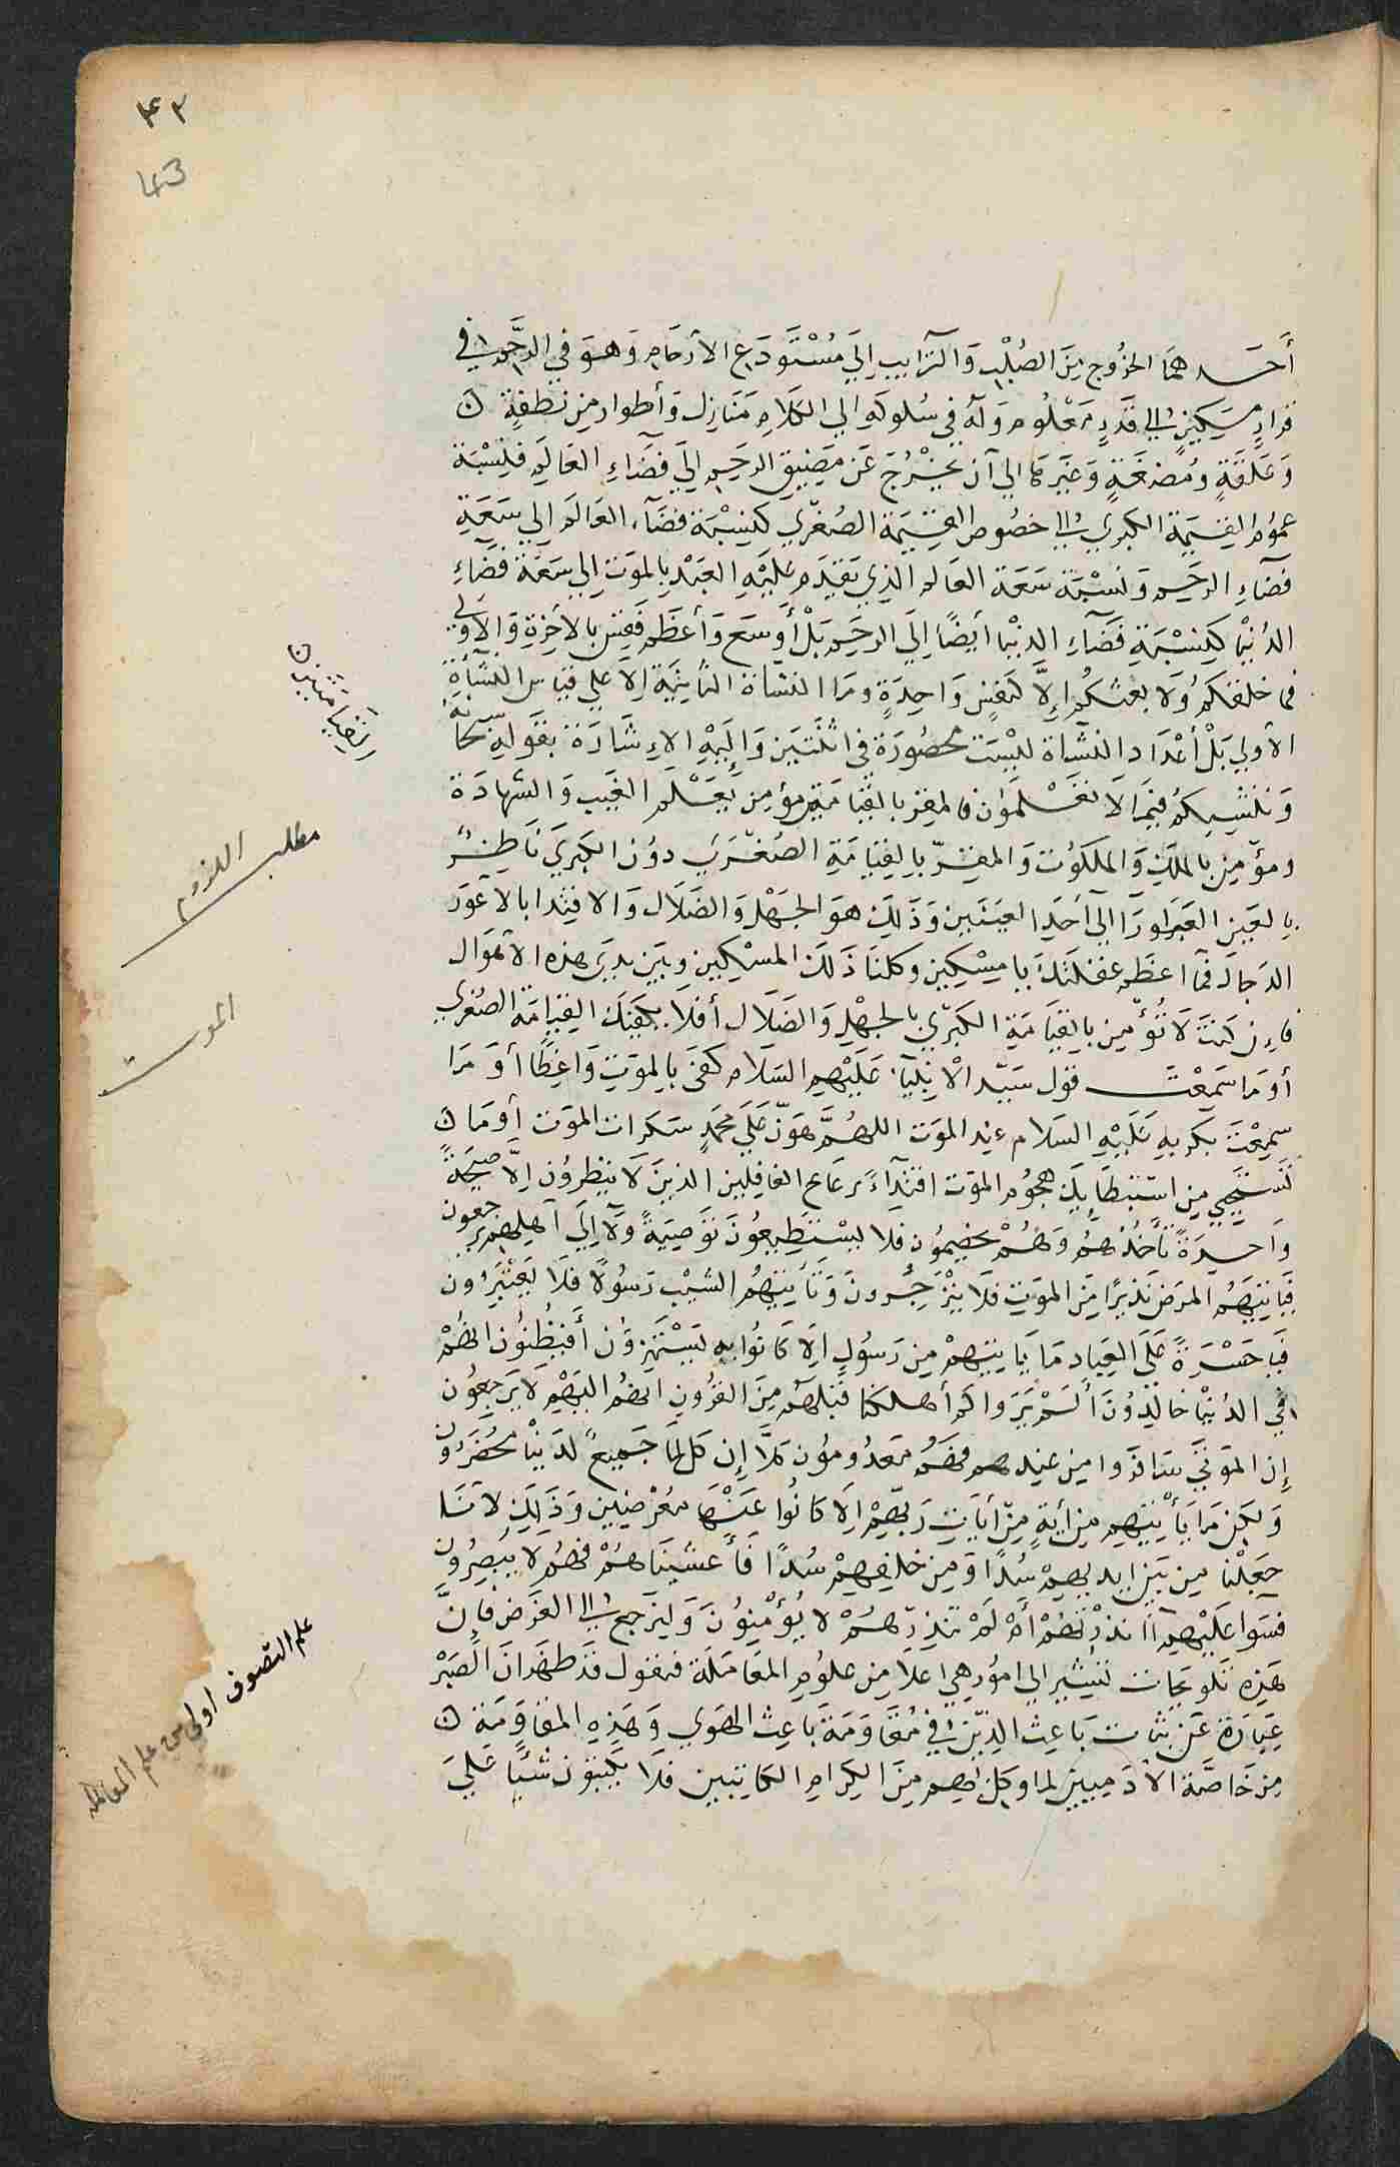 ٤٣
43
أحدهما الخروج من الصلب والترايب إلي مستودع الارحام وهو في الرحم في
قرار مكين الي قدر معلوم وله في سلوكه الي الكلام منازل وأطوار من نطفة
وعلقة ومضغة وغيرها الي أن يخرج عن مضيق الرحم إلي فضاء العالم فنسبة
عموم القيمة الكبري الي خصوص القيمة الصغري كنسبة فضاء العالم الي سعة
فضاء الرحم ونسبة سعة العالم الذي يقدم عليه العبد بالموت الي سعة فضاء
الدنيا كنسبة فضاء الدنيا أيضا إلي الرحم بل أوسع وأعظم فقس بالاخرة والاولي
فما خلقكم ولا بعثكم إلا كنفس واحدة وما النشاة الثانية الا علي قياس النشأة
الأولي بل أعداد النشأة ليست محصورة في اثنتين وإليه الإشارة بقوله تعا
وننشيكم فيما لا تعلمون فالمقر بالقيامتين مؤمن بعالم الغيب والشهادة
ومؤمن بالملك والملكوت والمقر بالقيامة الصغري دون الكبري ناظر
بالعين العوراء إلي أحد العينين وذلك هو الجهل والضلال والاقتدا بالأعور
الدجال فما اعظم غفلتك يا مسكين وكلنا ذلك المسكين وبين يدي هذه الأهوال
فإن كنت لا تؤمن بالقيامة الكبري بالجهل والضلال أفلا يكفيك القيامة الصغري
أو ما سمعت قول سيد الانبياء عليهم السلام كفي بالموت واعظا أو ما
سمعت بكربه عليه السلام عند الموت اللهم هون علي محمد سكرات الموت أو ما
تستحي من استبطايك هجوم الموت اقتداء برعاع الغافلين الذين لا ينظرون إلا صيحة
واحدة تأخذهم وهم يخصمون فلا يستطيعون توصية ولا إلي أهلهم يرجعون
فيأتيهم المرض نذيرا من الموت فلا ينزجرون وتأتيهم الشيب رسولا فلا يعتبرون
فيا حسرة علي العباد ما يأتيهم من رسول إلا كانوا به يستهزؤن أفيظنون انهم
في الدنيا خالدون ألم يروا كم أهلكنا قبلهم من القرون انهم اليهم لا يرجعون
إن الموتي سافروا من عندهم فهم معدومون كلا إن كل لما جميع لدينا محضرون
ولكن ما يأتيهم من آية من آيات ربهم إلا كانوا عنها معرضين وذلك لأنا
جعلنا من بين ايديهم سدا ومن خلفهم سدا فأغشيناهم فهم لا يبصرون
فسوا عليهم أأنذرتهم أم لم تنذرهم لا يؤمنون ولنرجع الي الغرض فإن
هذه تلويحات تشير الي امور هي اعلا من علوم المعاملة فنقول قد ظهر ان الصبر
عبارة عن ثبات باعث الدين في مقاومة باعث الهوي وهذه المقاومة
من خاصة الادميين لما وكل بهم من الكرام الكاتبين فلا يكتبون شيأ علي
مطلب اللزوم
الموت
علم التصوف اولى من علم المعاملة